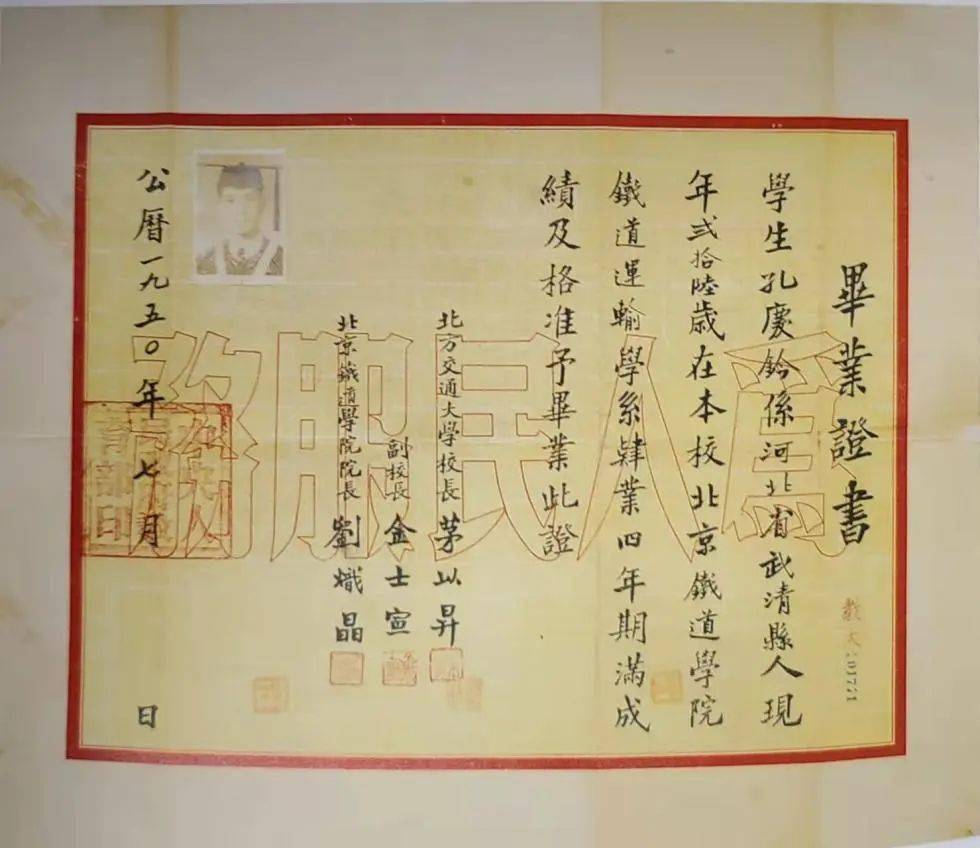 畢業證書
學生孔慶鈐係河北省武清縣人現
年弍拾陸歲在本校北京鐵道學院
鐵道運輸學系肄業四年期滿成
績及格准予畢業此證
北方交通大學校長茅以昇
副校長金士宣
北京鐵道學院院長劉熾晶
公曆一九五〇年七月 日
為人民服務